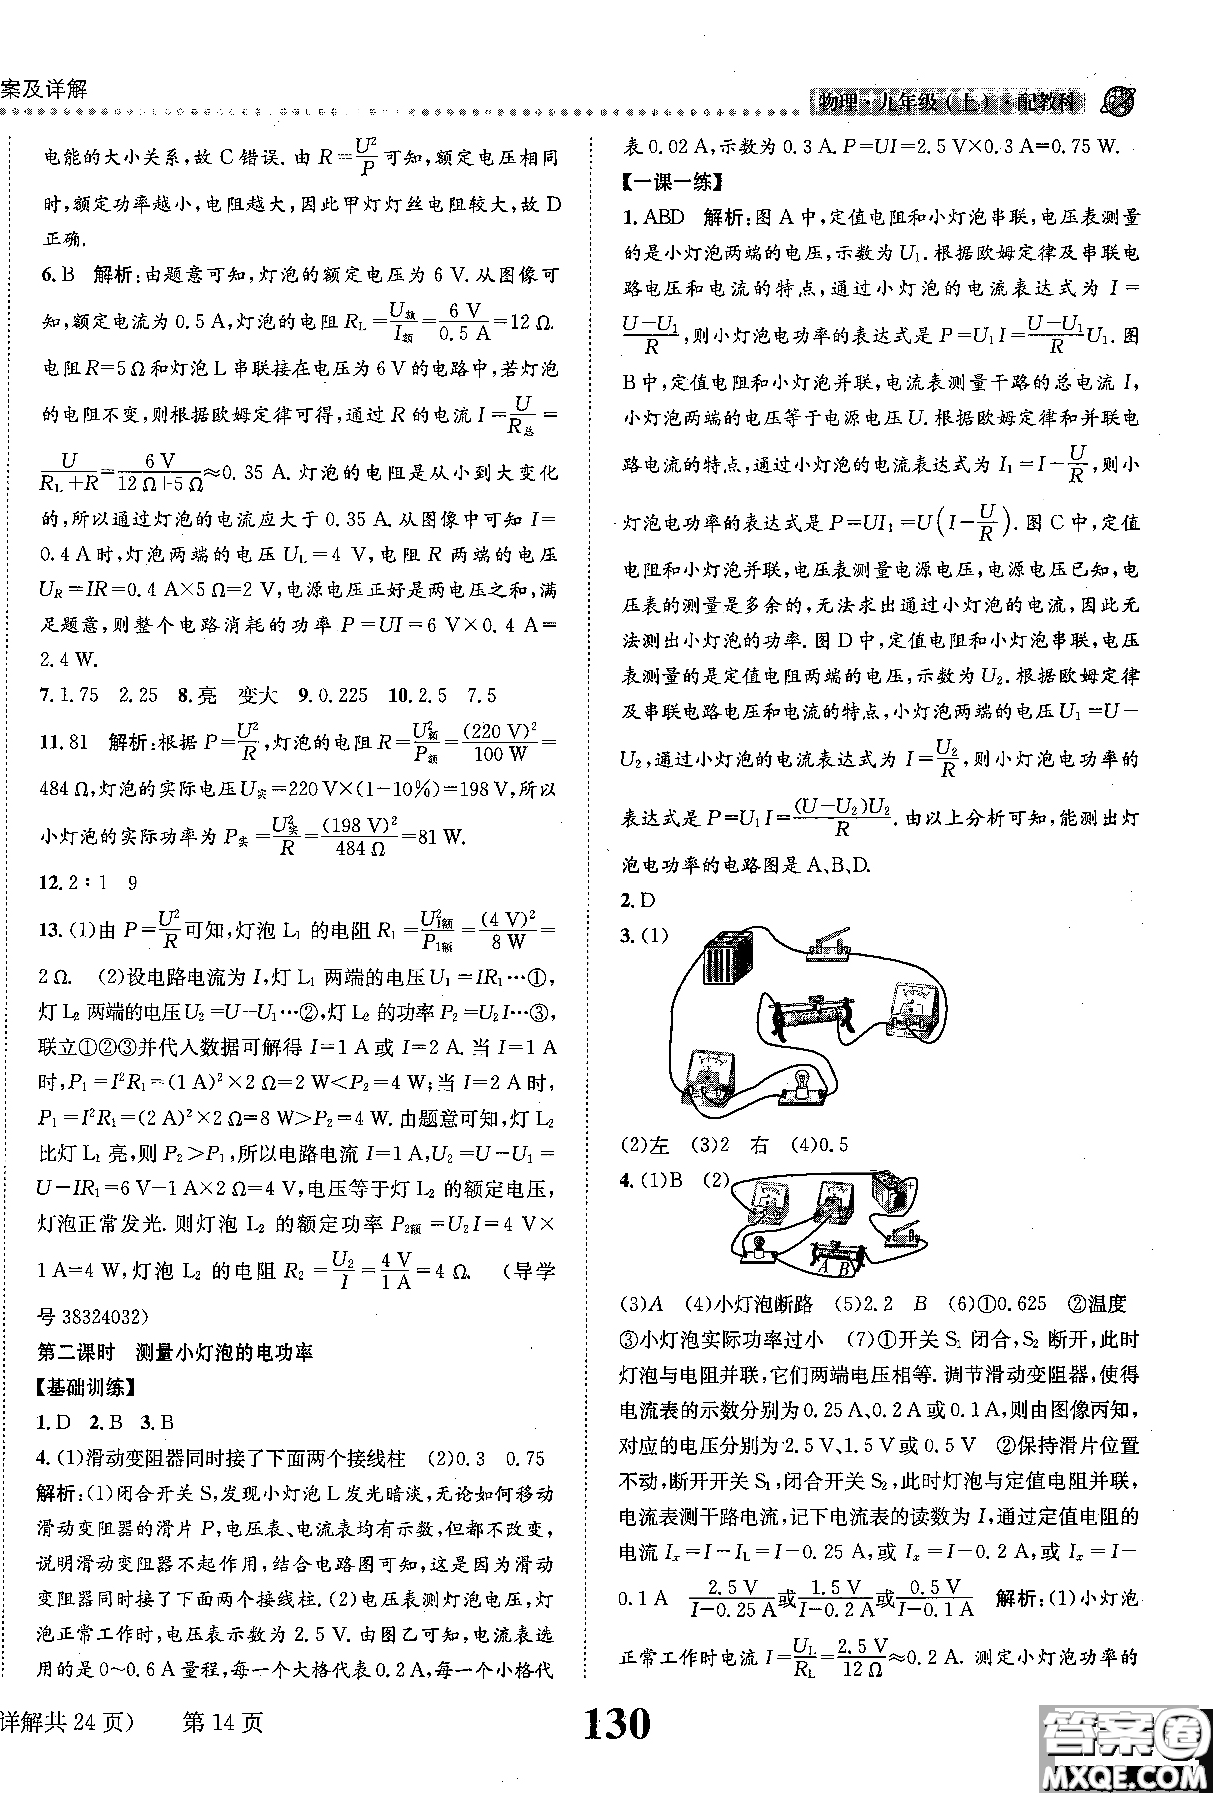 案及详解
物理·九年级(上)·配教科
电能的大小关系,故 C 错误. 由 R=U²/P 可知,额定电压相同
时,额定功率越小,电阻越大,因此甲灯灯丝电阻较大,故 D
正确.
6. B 解析:由题意可知,灯泡的额定电压为 6 V. 从图像可
知,额定电流为 0.5 A,灯泡的电阻 R_L=U额/I额=6 V/0.5 A=12 Ω.
电阻 R=5 Ω 和灯泡 L 串联接在电压为 6 V 的电路中,若灯泡
的电阻不变,则根据欧姆定律可得,通过 R 的电流 I=U/R总=
U/(R_L+R)=6 V/(12 Ω+5 Ω)≈0.35 A. 灯泡的电阻是从小到大变化
的,所以通过灯泡的电流应大于 0.35 A. 从图像中可知 I=
0.4 A 时,灯泡两端的电压 U_L=4 V,电阻 R 两端的电压
U_R=IR=0.4 A×5 Ω=2 V,电源电压正好是两电压之和,满
足题意,则整个电路消耗的功率 P=UI=6 V×0.4 A=
2.4 W.
7. 1.75 2.25 8. 亮 变大 9. 0.225 10. 2.5 7.5
11. 81 解析:根据 P=U²/R,灯泡的电阻 R=U额²/P额=(220 V)²/100 W=
484 Ω,灯泡的实际电压 U实=220 V×(1-10%)=198 V,所以
小灯泡的实际功率为 P实=U实²/R=(198 V)²/484 Ω=81 W.
12. 2∶1 9
13. (1)由 P=U²/R 可知,灯泡 L₁ 的电阻 R₁=U₁额²/P₁额=(4 V)²/8 W=
2 Ω. (2)设电路电流为 I,灯 L₁ 两端的电压 U₁=IR₁…①,
灯 L₂ 两端的电压 U₂=U-U₁…②,灯 L₂ 的功率 P₂=U₂I…③,
联立①②③并代入数据可解得 I=1 A 或 I=2 A. 当 I=1 A
时,P₁=I²R₁=(1 A)²×2 Ω=2 W<P₂=4 W;当 I=2 A 时,
P₁=I²R₁=(2 A)²×2 Ω=8 W>P₂=4 W. 由题意可知,灯 L₂
比灯 L₁ 亮,则 P₂>P₁,所以电路电流 I=1 A,U₂=U-U₁=
U-IR₁=6 V-1 A×2 Ω=4 V,电压等于灯 L₂ 的额定电压,
灯泡正常发光. 则灯泡 L₂ 的额定功率 P₂额=U₂I=4 V×
1 A=4 W,灯泡 L₂ 的电阻 R₂=U₂/I=4 V/1 A=4 Ω. (导学
号 38324032)
第二课时 测量小灯泡的电功率
【基础训练】
1. D 2. B 3. B
4. (1)滑动变阻器同时接了下面两个接线柱 (2)0.3 0.75
解析:(1)闭合开关 S,发现小灯泡 L 发光暗淡,无论如何移动
滑动变阻器的滑片 P,电压表、电流表均有示数,但都不改变,
说明滑动变阻器不起作用,结合电路图可知,这是因为滑动
变阻器同时接了下面两个接线柱. (2)电压表测灯泡电压,灯
泡正常工作时,电压表示数为 2.5 V. 由图乙可知,电流表选
用的是 0~0.6 A 量程,每一个大格代表 0.2 A,每一个小格代
表 0.02 A,示数为 0.3 A. P=UI=2.5 V×0.3 A=0.75 W.
【一课一练】
1. ABD 解析:图 A 中,定值电阻和小灯泡串联,电压表测量
的是小灯泡两端的电压,示数为 U₁. 根据欧姆定律及串联电
路电压和电流的特点,通过小灯泡的电流表达式为 I=
(U-U₁)/R,则小灯泡电功率的表达式是 P=U₁I=(U-U₁)/R U₁. 图
B 中,定值电阻和小灯泡并联,电流表测量干路的总电流 I,
小灯泡两端的电压等于电源电压 U. 根据欧姆定律和并联电
路电流的特点,通过小灯泡的电流表达式为 I₁=I-U/R,则小
灯泡电功率的表达式是 P=UI₁=U(I-U/R). 图 C 中,定值
电阻和小灯泡并联,电压表测量电源电压,电源电压已知,电
压表的测量是多余的,无法求出通过小灯泡的电流,因此无
法测出小灯泡的功率. 图 D 中,定值电阻和小灯泡串联,电压
表测量的是定值电阻两端的电压,示数为 U₂. 根据欧姆定律
及串联电路电压和电流的特点,小灯泡两端的电压 U₁=U-
U₂,通过小灯泡的电流表达式为 I=U₂/R,则小灯泡电功率的
表达式是 P=U₁I=(U-U₂)U₂/R. 由以上分析可知,能测出灯
泡电功率的电路图是 A、B、D.
2. D
3. (1)
(2)左 (3)2 右 (4)0.5
4. (1)B (2)
A B
(3)A (4)小灯泡断路 (5)2.2 B (6)①0.625 ②温度
③小灯泡实际功率过小 (7)①开关 S₁ 闭合,S₂ 断开,此时
灯泡与电阻并联,它们两端电压相等. 调节滑动变阻器,使得
电流表的示数分别为 0.25 A、0.2 A 或 0.1 A,则由图像丙知,
对应的电压分别为 2.5 V、1.5 V 或 0.5 V ②保持滑片位置
不动,断开开关 S₁,闭合开关 S₂,此时灯泡与定值电阻并联,
电流表测干路电流,记下电流表的读数为 I,通过定值电阻的
电流 Iₓ=I-I_L=I-0.25 A,或 Iₓ=I-0.2 A,或 Iₓ=I-
0.1 A 2.5 V/(I-0.25 A)或1.5 V/(I-0.2 A)或0.5 V/(I-0.1 A) 解析:(1)小灯泡
正常工作时电流 I=U_L/R_L=2.5 V/12 Ω≈0.2 A. 测定小灯泡功率的
详解共 24 页) 第 14 页
130
答案圈
MXQE.COM